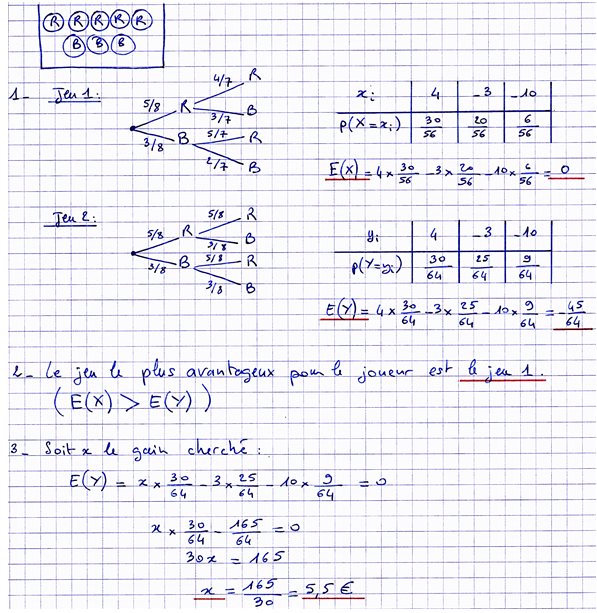 R R R R R
B B B
1_ Jeu 1:
5/8 R 4/7 R
3/7 B
3/8 B 5/7 R
2/7 B
xi 4 -3 -10
p(X=xi) 30/56 20/56 6/56
E(X) = 4 × 30/56 - 3 × 20/56 - 10 × 6/56 = 0
Jeu 2:
5/8 R 5/8 R
3/8 B
3/8 B 5/8 R
3/8 B
yi 4 -3 -10
p(Y=yi) 30/64 25/64 9/64
E(Y) = 4 × 30/64 - 3 × 25/64 - 10 × 9/64 = -45/64
2_ Le jeu le plus avantageux pour le joueur est le jeu 1.
( E(X) > E(Y) )
3_ Soit x le gain cherché :
E(Y) = x × 30/64 - 3 × 25/64 - 10 × 9/64 = 0
x × 30/64 - 165/64 = 0
30x = 165
x = 165/30 = 5,5 €